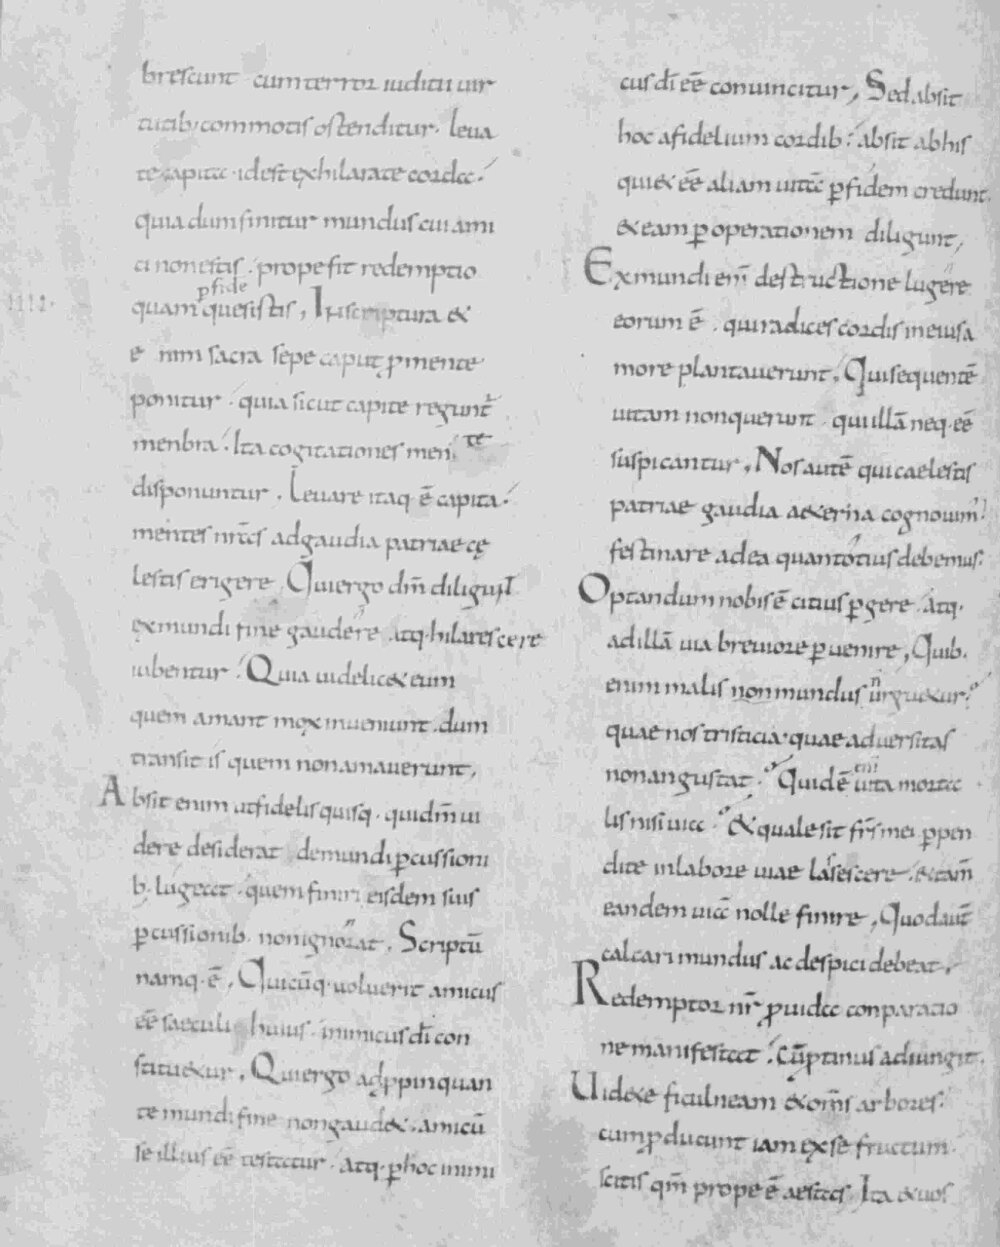 brescunt cum terror iudicii uir
tutib; commotis ostenditur. leua
te capita. id est exhilarate corda.
quia dum finitur mundus cui ami
ci non estis. prope fit redemptio
p fide
IIII.
quam quesistis, In scriptura &
e nim sacra sepe caput p mente
ponitur. quia sicut capite regunt
menbra. Ita cogitationes mente
disponuntur. Leuare itaq ē capita.
mentes nr̄as ad gaudia patriae cę
lestis erigere. Qui ergo dm̄ diligunt
ex mundi fine gaudere atq. hilarescere
iubentur. Quia uidelic& eum
quem amant mox inueniunt. dum
transit is quem non amauerunt.
Absit enim ut fidelis quisq. qui dm̄ ui
dere desiderat de mundi pcussioni
b. lugeat. quem finiri eisdem suis
pcussionib. non ignorat. Scriptū
namq. ē. Quicūq. uoluerit amicus
eē saeculi huius. inimicus dī con
stitu&ur. Qui ergo adppinquan
te mundi fine non gaud&. amicū
se illius eē testatur. atq. p hoc inimi
cus dī eē conuincitur, Sed absit
hoc a fidelium cordib: absit ab his
qui & eē aliam uitā p fidem credunt.
& eam p operationem diligunt,
Ex mundi eni destructione lugere
eorum ē. qui radices cordis in eius a
more plantauerunt, Qui sequentē
uitam non querunt. qui illā neq. eē
suspicantur, Nos autē qui caelestis
patriae gaudia aeterna cognouim'.
festinare ad ea quantotius debemus:
Optandum nobis ē citius pgere. atq.
ad illā uia breuiore p uenire, Quib.
enim malis non mundus urgu&ur.
quae nos tristicia. quae aduersitas
non angustat. Quid ē uita morta
lis nisi uia. & quale sit frs̄ mei p pen
dite in labore uiae lassescere. & tam̄
eandem uiā nolle finire, Quod aut̄
calcari mundus ac despici debeat,
Redemptor nr̄ puida conparatio
ne manifestat. cū ptinus adiungit.
Uidete ficulneam & om̄s arbores.
cum pducunt iam ex se fructum.
scitis qm̄ prope ē aestas. Ita & uos